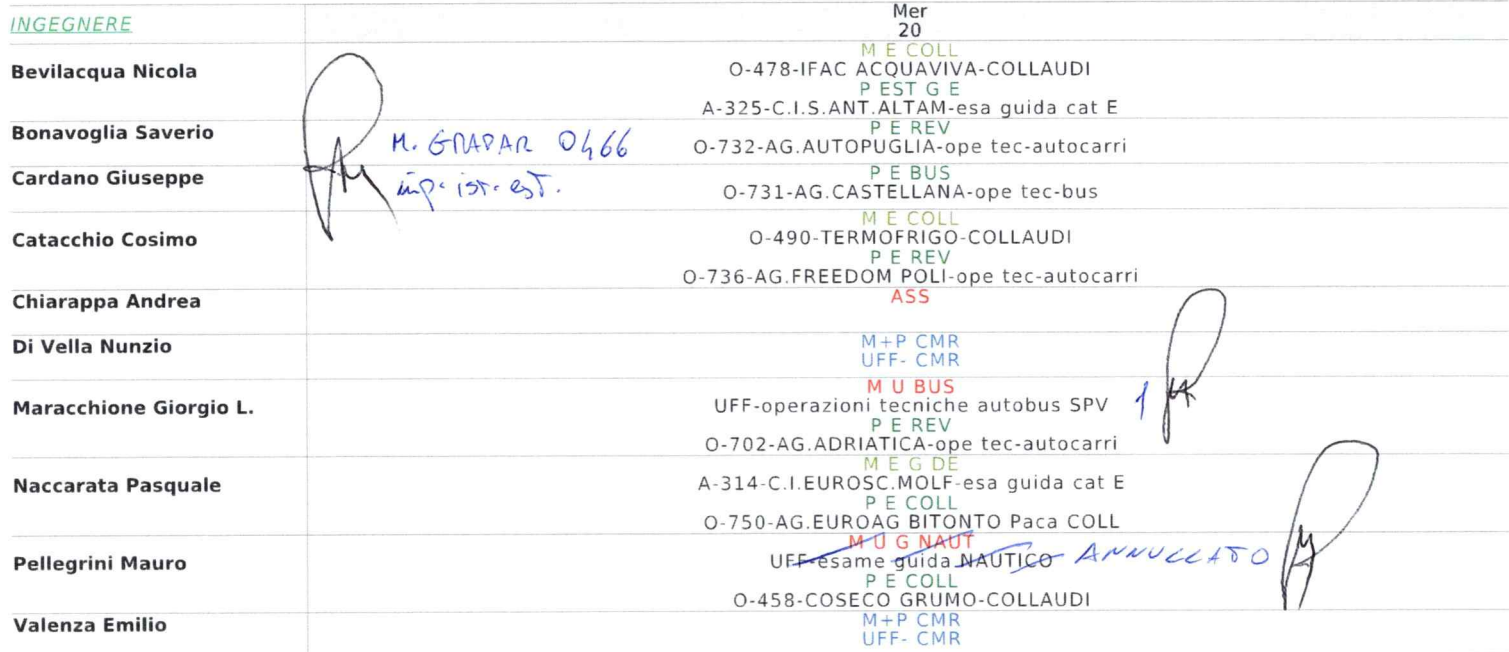 INGEGNERE
Mer
20
Bevilacqua Nicola
M E COLL
O-478-IFAC ACQUAVIVA-COLLAUDI
P EST G E
A-325-C.I.S.ANT.ALTAM-esa guida cat E
Bonavoglia Saverio
M. GRAPAR 0466
P E REV
O-732-AG.AUTOPUGLIA-ope tec-autocarri
Cardano Giuseppe
imp. ist. est.
P E BUS
O-731-AG.CASTELLANA-ope tec-bus
Catacchio Cosimo
M E COLL
O-490-TERMOFRIGO-COLLAUDI
P E REV
O-736-AG.FREEDOM POLI-ope tec-autocarri
Chiarappa Andrea
ASS
Di Vella Nunzio
M+P CMR
UFF- CMR
Maracchione Giorgio L.
M U BUS
UFF-operazioni tecniche autobus SPV 1
P E REV
O-702-AG.ADRIATICA-ope tec-autocarri
Naccarata Pasquale
M E G DE
A-314-C.I.EUROSC.MOLF-esa guida cat E
P E COLL
O-750-AG.EUROAG BITONTO Paca COLL
Pellegrini Mauro
M U G NAUT
UFF-esame guida NAUTICO ANNULLATO
P E COLL
O-458-COSECO GRUMO-COLLAUDI
Valenza Emilio
M+P CMR
UFF- CMR